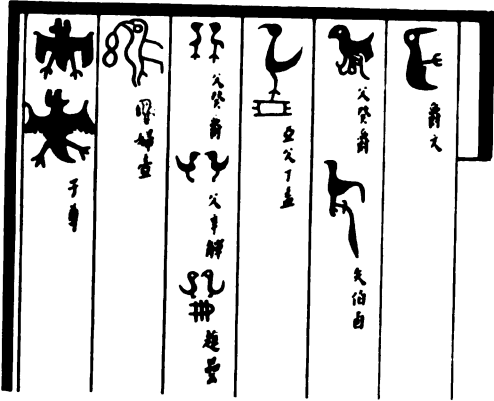 爵文
父癸爵
矢伯卣
亞父丁
父癸爵
父辛觶
婦壺
子尊